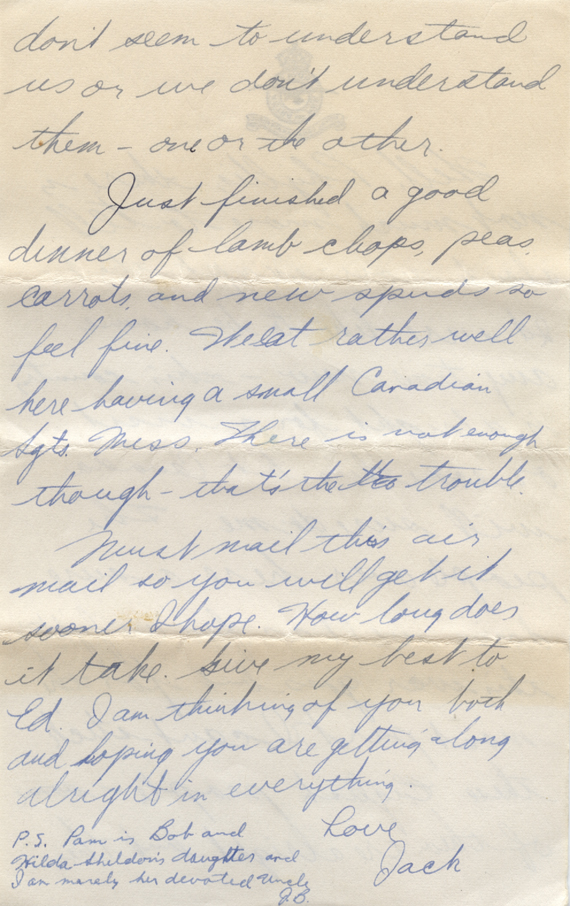 don't seem to understand
us or we don't understand
them - one or the other.
Just finished a good
dinner of lamb chops, peas,
carrots, and new spuds so
feel fine. We eat rather well
here having a small Canadian
Sgts. Mess. There is not enough
though - that's the trouble.
Must mail this air
mail so you will get it
sooner I hope. How long does
it take. Give my best to
Ed. I am thinking of you both
and hoping you are getting along
alright in everything.
Love
Jack
P.S. Pam is Bob and
Hilda Sheldon's daughter and
I am merely her devoted Uncle
J.B.